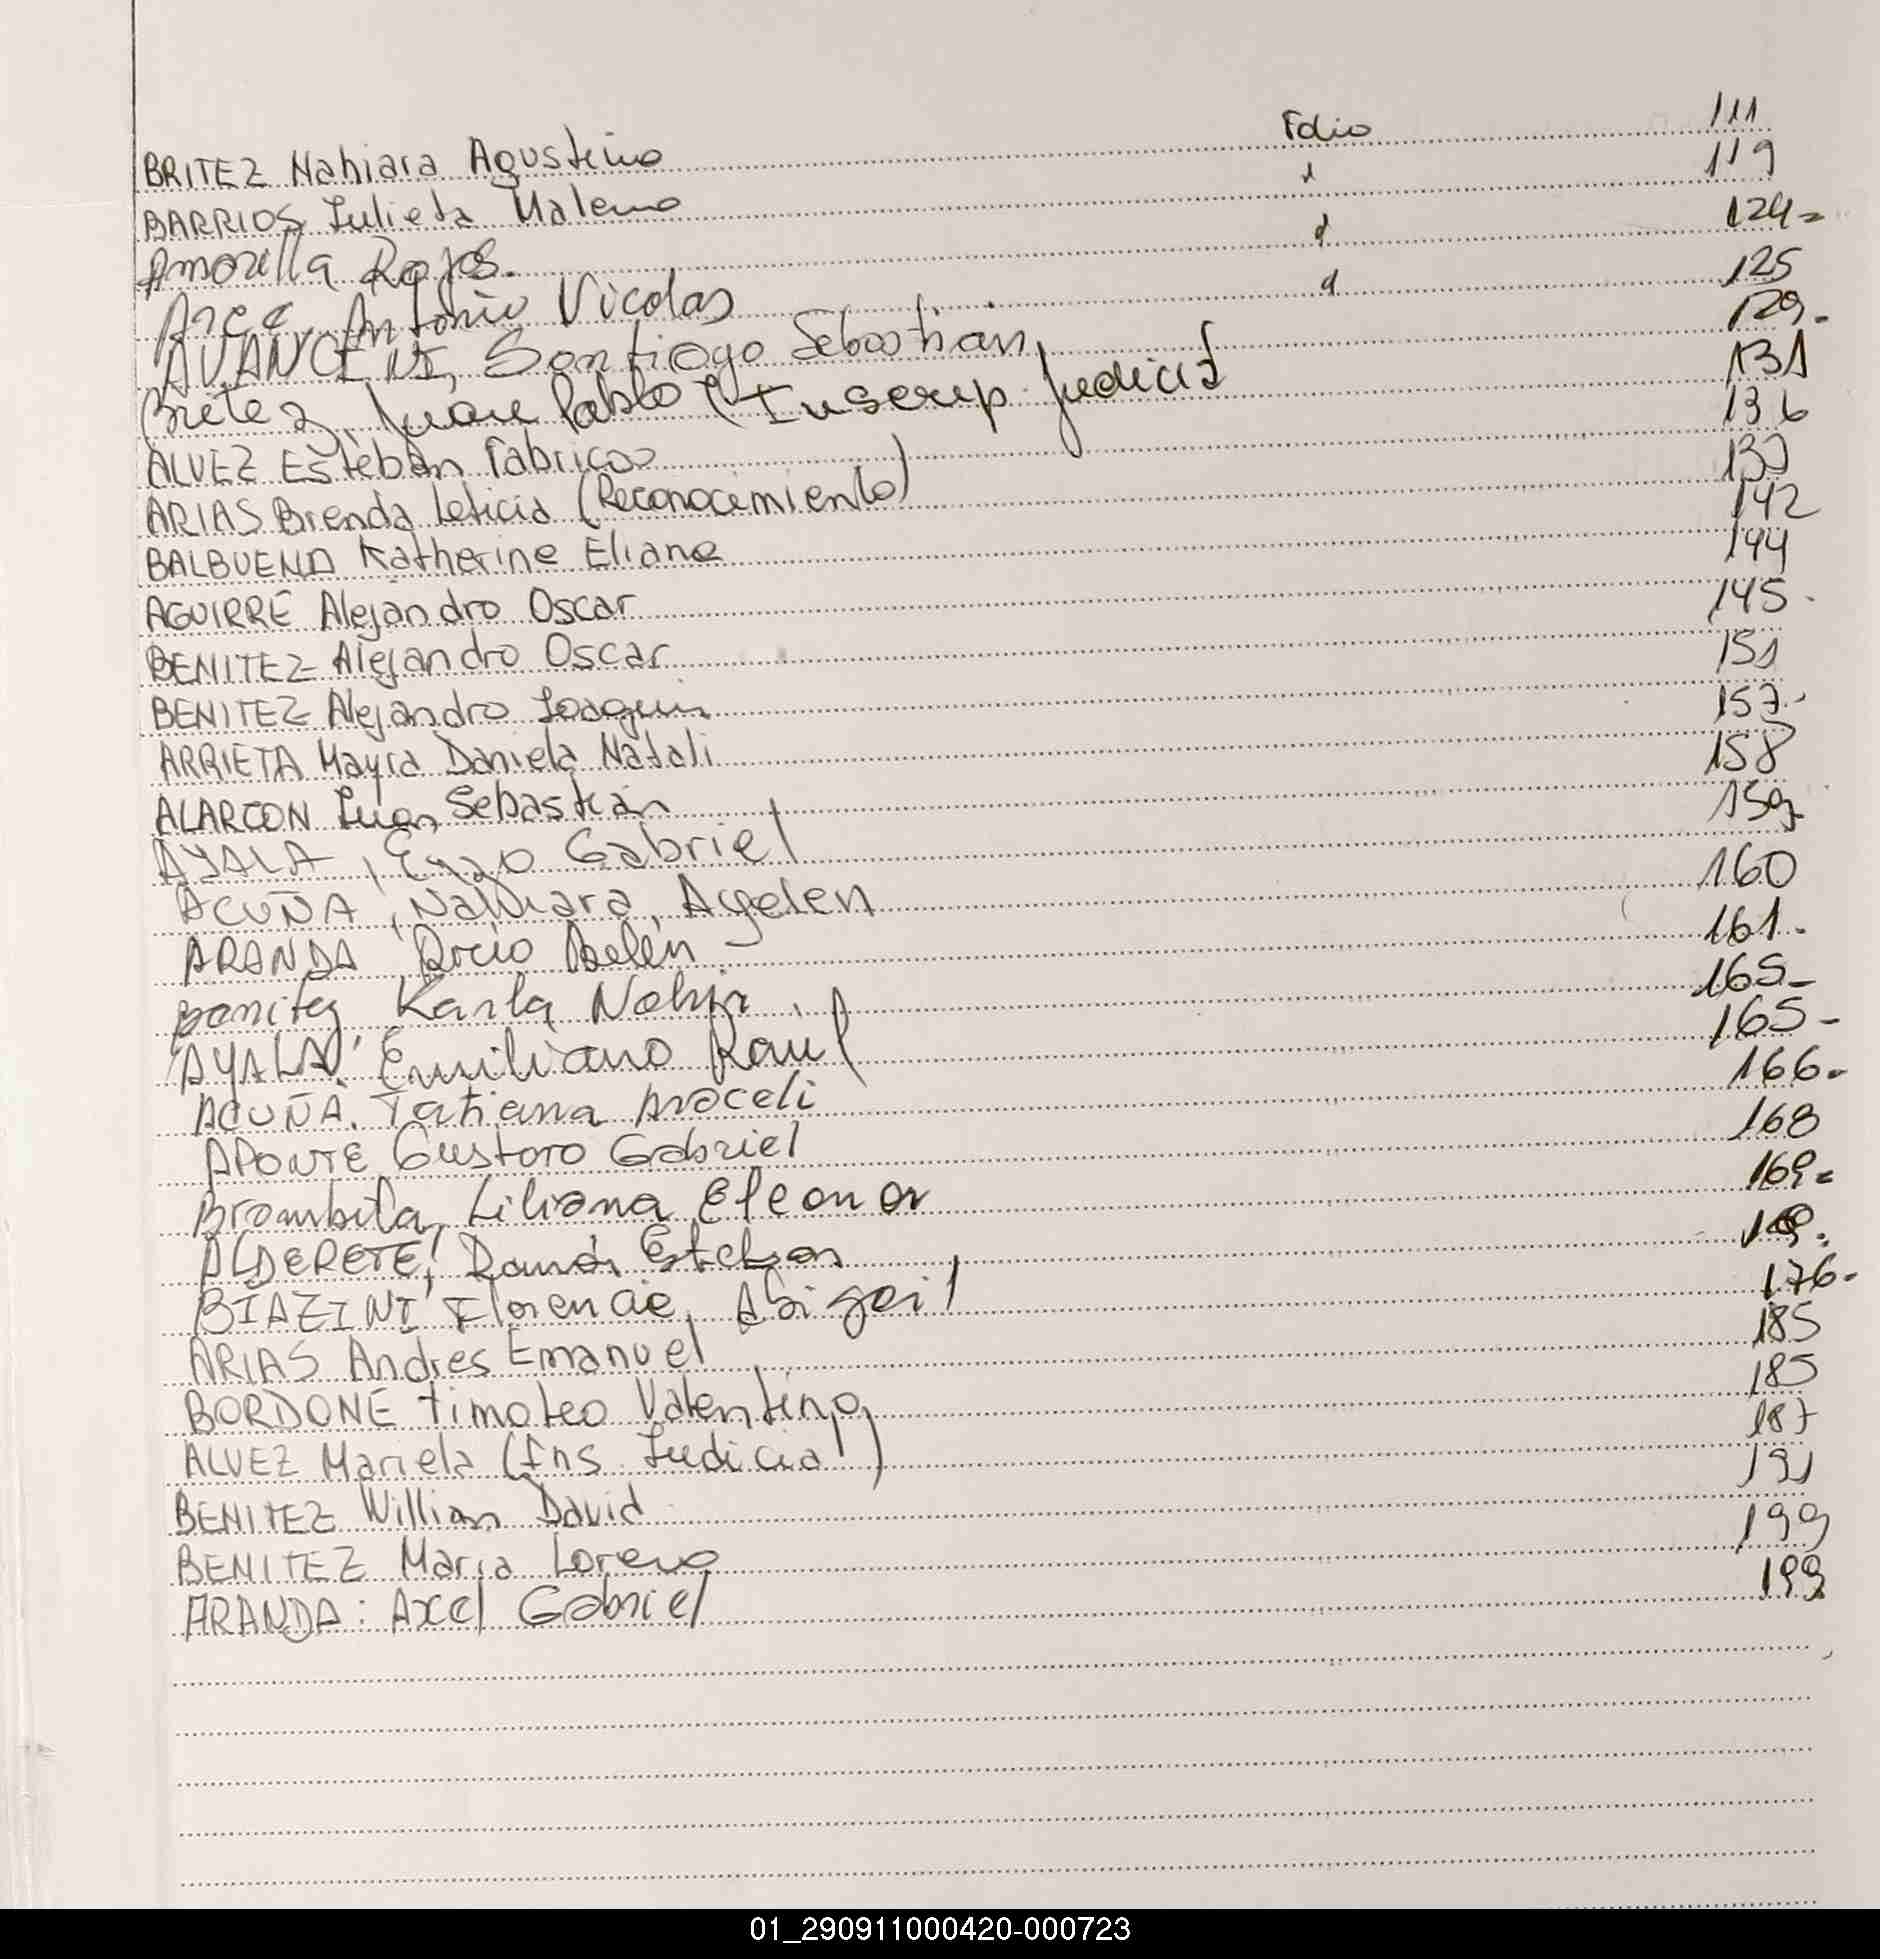 BRITEZ Nahiara Agustina Folio 111
BARRIOS Julieta Malena " 119
Amorilla Rojas. " 124=
Arce, Antonio Nicolas " 125
AVANCINI, Santiago Sebastian 129.
Britez, Juan Pablo (Inscrip. Judicial 131
ALVEZ Esteban Fabricio 136
ARIAS Brenda Leticia (Reconocimiento) 139
BALBUENA Katherine Eliane 142
AGUIRRE Alejandro Oscar 144
BENITEZ Alejandro Oscar 145.
BENITEZ Alejandro Joaquin 151
ARRIETA Mayra Daniela Natali 157.-
ALARCON Juan Sebastian 158
AYALA, Enzo Gabriel 159
ACUÑA, Nahiara, Ayelen 160
ARANDA, Rocio Belén 161.
Benitez Karla Nahir 165-
AYALA, Emiliano Raul 165-
ACUÑA. Tatiana Araceli 166.
APONTE Gustavo Gabriel 168
Brombila, Liliana Eleonor 169=
ALDERETE, Ramón Esteban
BIAZINI Florencia, Abigail 176-
ARIAS Andres Emanuel 185
BORDONE Timoteo Valentino 185
ALVEZ Mariela (Ins Judicial) 187
BENITEZ Willian David 191
BENITEZ Maria Lorena 199
ARANDA: Axel Gabriel 199
01_290911000420-000723